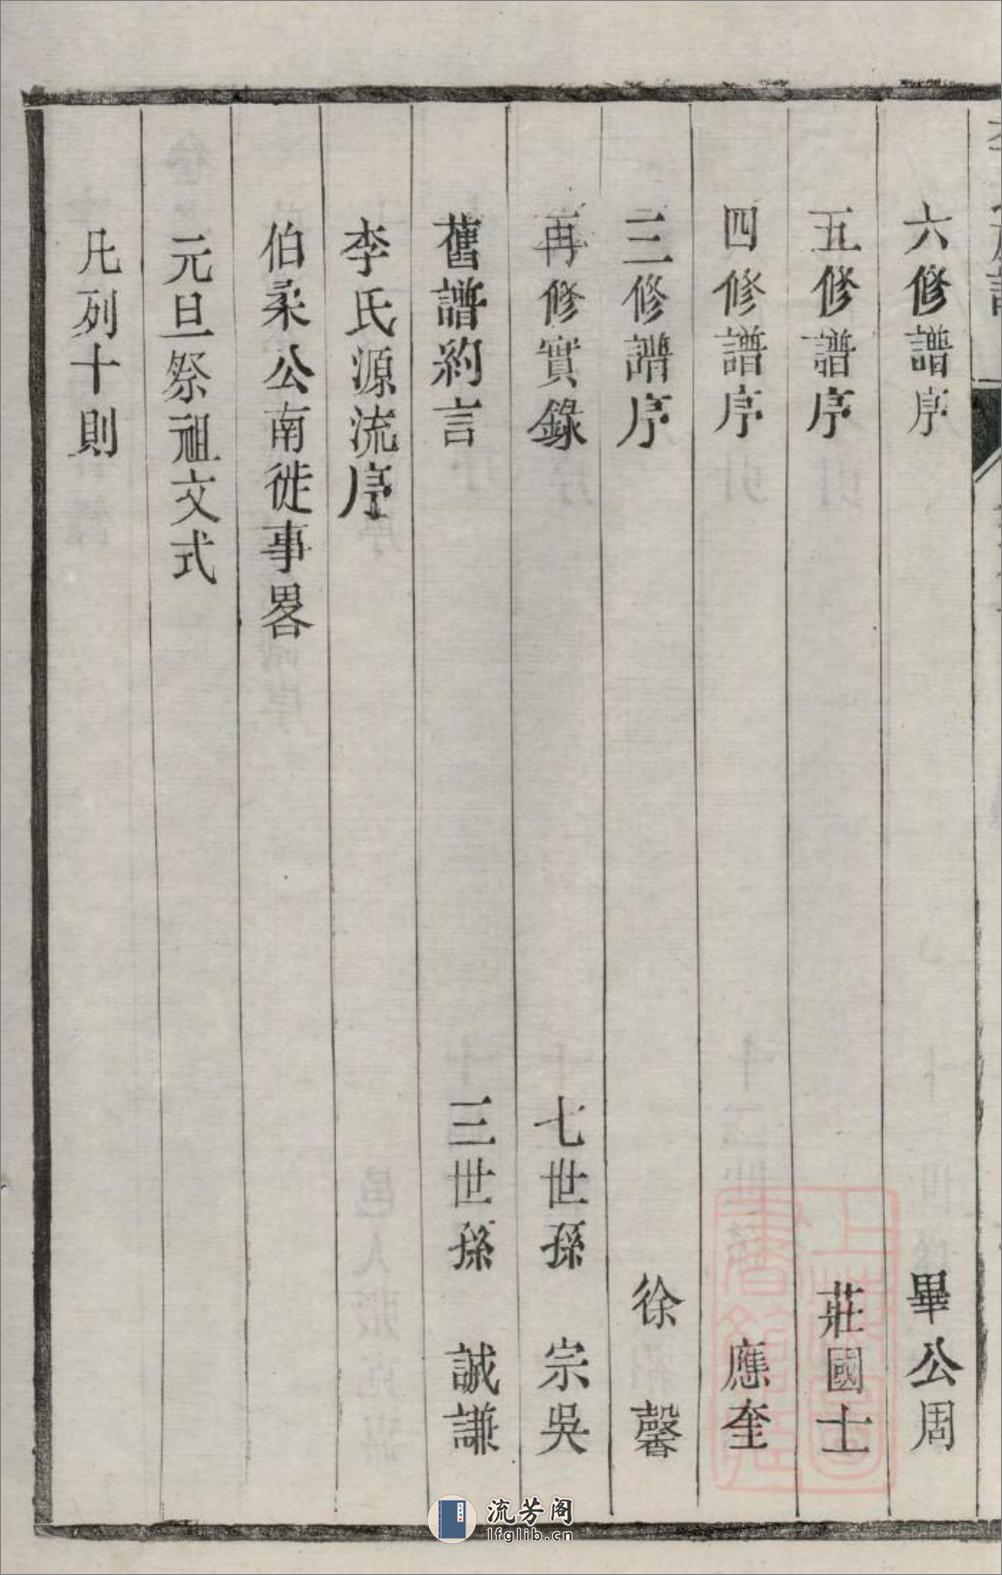 六修譜序 畢公周
五修譜序 莊國士
四修譜序 應奎
三修譜序 徐馨
再修實錄 七世孫 宗吳
舊譜約言 三世孫 誠謙
李氏源流序
伯柔公南徙事畧
元旦祭祖文式
凡列十則
上海圖書館藏
流芳阁
lfglib.cn